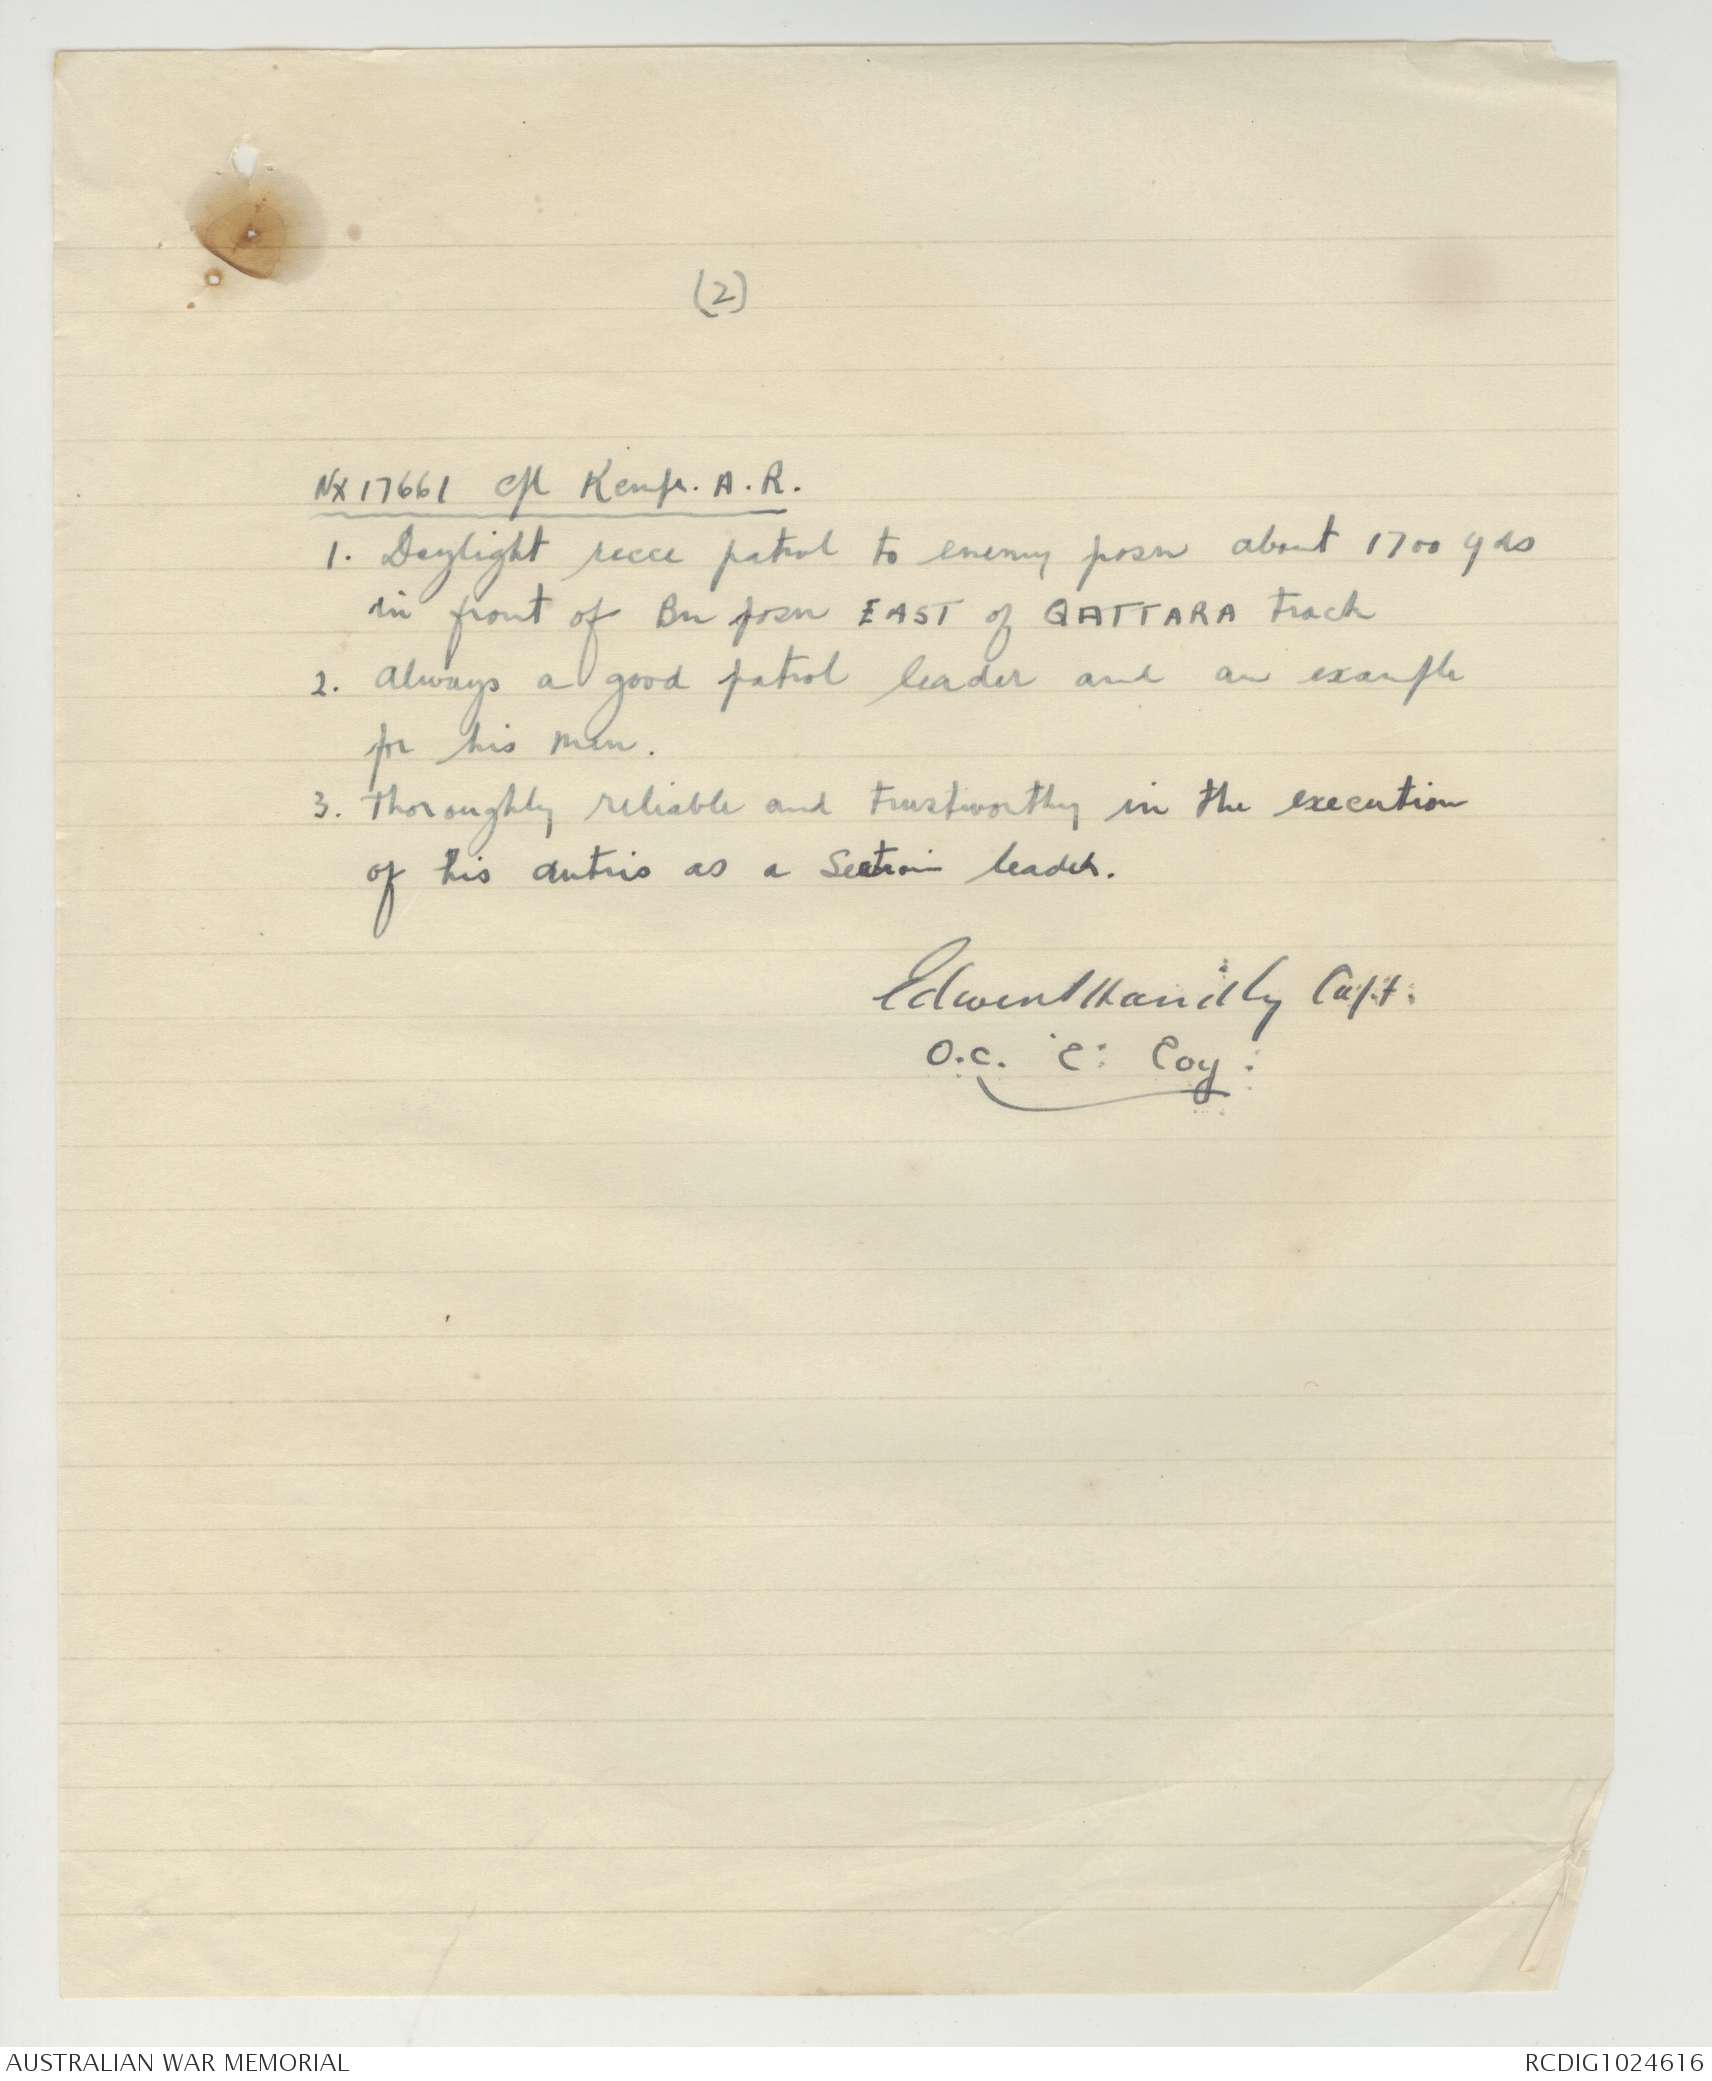 (2)
NX17661 Cpl Kemp. A.R.
1. Daylight recce patrol to enemy posn about 1700 yds
in front of Bn posn EAST of QATTARA track
2. Always a good patrol leader and an example
for his men.
3. Thoroughly reliable and trustworthy in the execution
of his duties as a Section leader.
Capt.
O.C. 'C' Coy.
AUSTRALIAN WAR MEMORIAL
RCDIG1024616